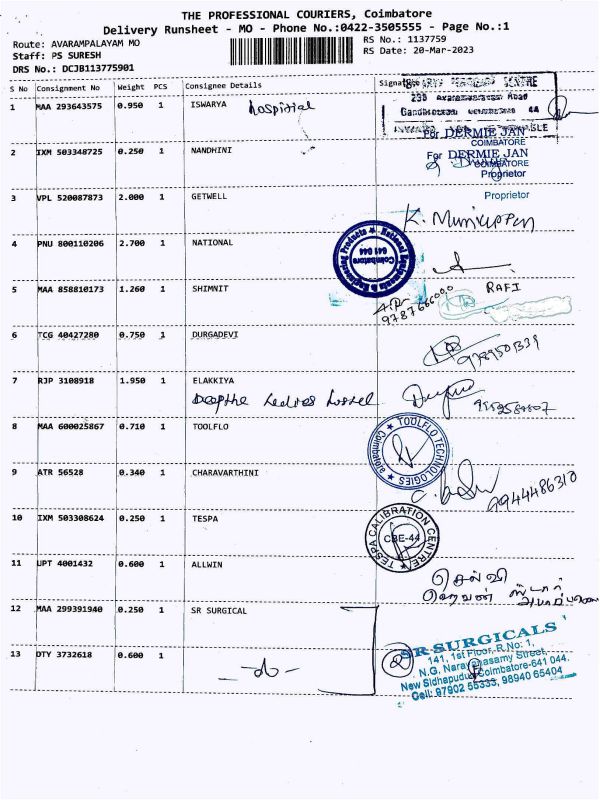 THE PROFESSIONAL COURIERS, Coimbatore
Delivery Runsheet - MO - Phone No.:0422-3505555 - Page No.:1
Route: AVARAMPALAYAM MO
RS No.: 1137759
Staff: PS SURESH
RS Date: 20-Mar-2023
DRS No.: DCJB113775901
S No Consignment No Weight PCS Consignee Details Signature
1 MAA 293643575 0.950 1 ISWARYA hospitial
2 IXM 503348725 0.250 1 NANDHINI
For DERMIE JAN
COIMBATORE
For DERMIE JAN
COIMBATORE
Proprietor
3 VPL 520087873 2.000 1 GETWELL
Proprietor
4 PNU 800110206 2.700 1 NATIONAL
Coimbatore
641 044
5 MAA 858810173 1.260 1 SHIMNIT
RAFI
9787666000
6 TCG 40427280 0.750 1 DURGADEVI
7 RJP 3108918 1.950 1 ELAKKIYA
8 MAA 600025867 0.710 1 TOOLFLO
TOOLFLO TECHNOLOGIES
Coimbatore
9 ATR 56528 0.340 1 CHARAVARTHINI
9944486310
10 IXM 503308624 0.250 1 TESPA
TESPA CALIBRATION CENTRE
CBE-44
11 UPT 4001432 0.600 1 ALLWIN
செல்வி
12 MAA 299391940 0.250 1 SR SURGICAL
SR SURGICALS
141, 1st Floor, R.No: 1,
N.G. Narayanasamy Street,
New Sidhapudur, Coimbatore-641 044.
Cell: 97902 55333, 98940 65404
13 DTY 3732618 0.600 1